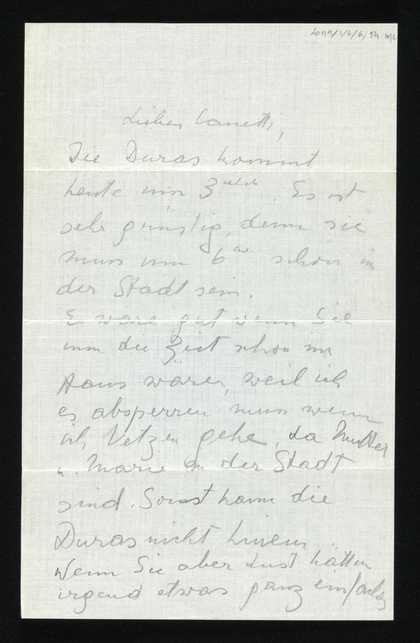 Lieber Canetti,
Die Duras kommt
heute um 3 Uhr. Es ist
sehr günstig, denn sie
muss um 6 Uhr schon in
der Stadt sein.
Es wäre gut wenn Sie
um die Zeit schon im
Haus wären, weil ich
es absperren muss wenn
ich gehe, da Mutter
u. Marie in der Stadt
sind. Sonst kann die
Duras nicht hinein.
Wenn Sie aber Lust hätten
irgend etwas ganz einfaches